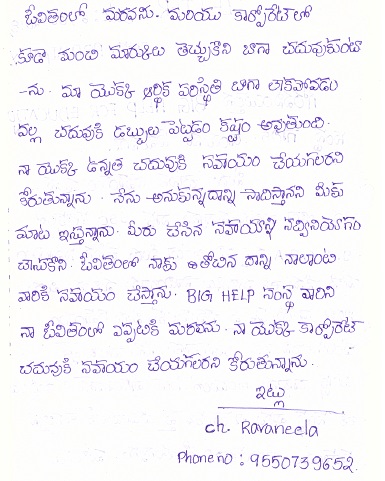 జీవితంలో మరవను. మరియు కార్పొరేట్ లో
కూడా మంచి మార్కులు తెచ్చుకొని బాగా చదువుకుంటా
-ను. మా యొక్క ఆర్థిక పరిస్థితి బాగా లేకపోవడం
వల్ల చదువుకి డబ్బులు పెట్టడం కష్టం అవుతుంది.
నా యొక్క ఉన్నత చదువుకి సహాయం చేయగలరని
కోరుతున్నాను. నేను అనుకున్నదాన్ని సాదిస్తానని మీకు
మాట ఇస్తున్నాను. మీరు చేసిన సహాయాన్ని సద్వినియోగం
చేసుకొని. జీవితంలో నాకు తోచిన దాన్ని నాలాంటి
వారికి సహాయం చేస్తాను. BIG HELP సంస్థ వారిని
నా జీవితంలో ఎప్పటికి మరవను. నా యొక్క కార్పొరేట్
చదువుకి సహాయం చేయగలరని కోరుతున్నాను.
ఇట్లు
ch. Ravaneela
Phone no : 9550739652.